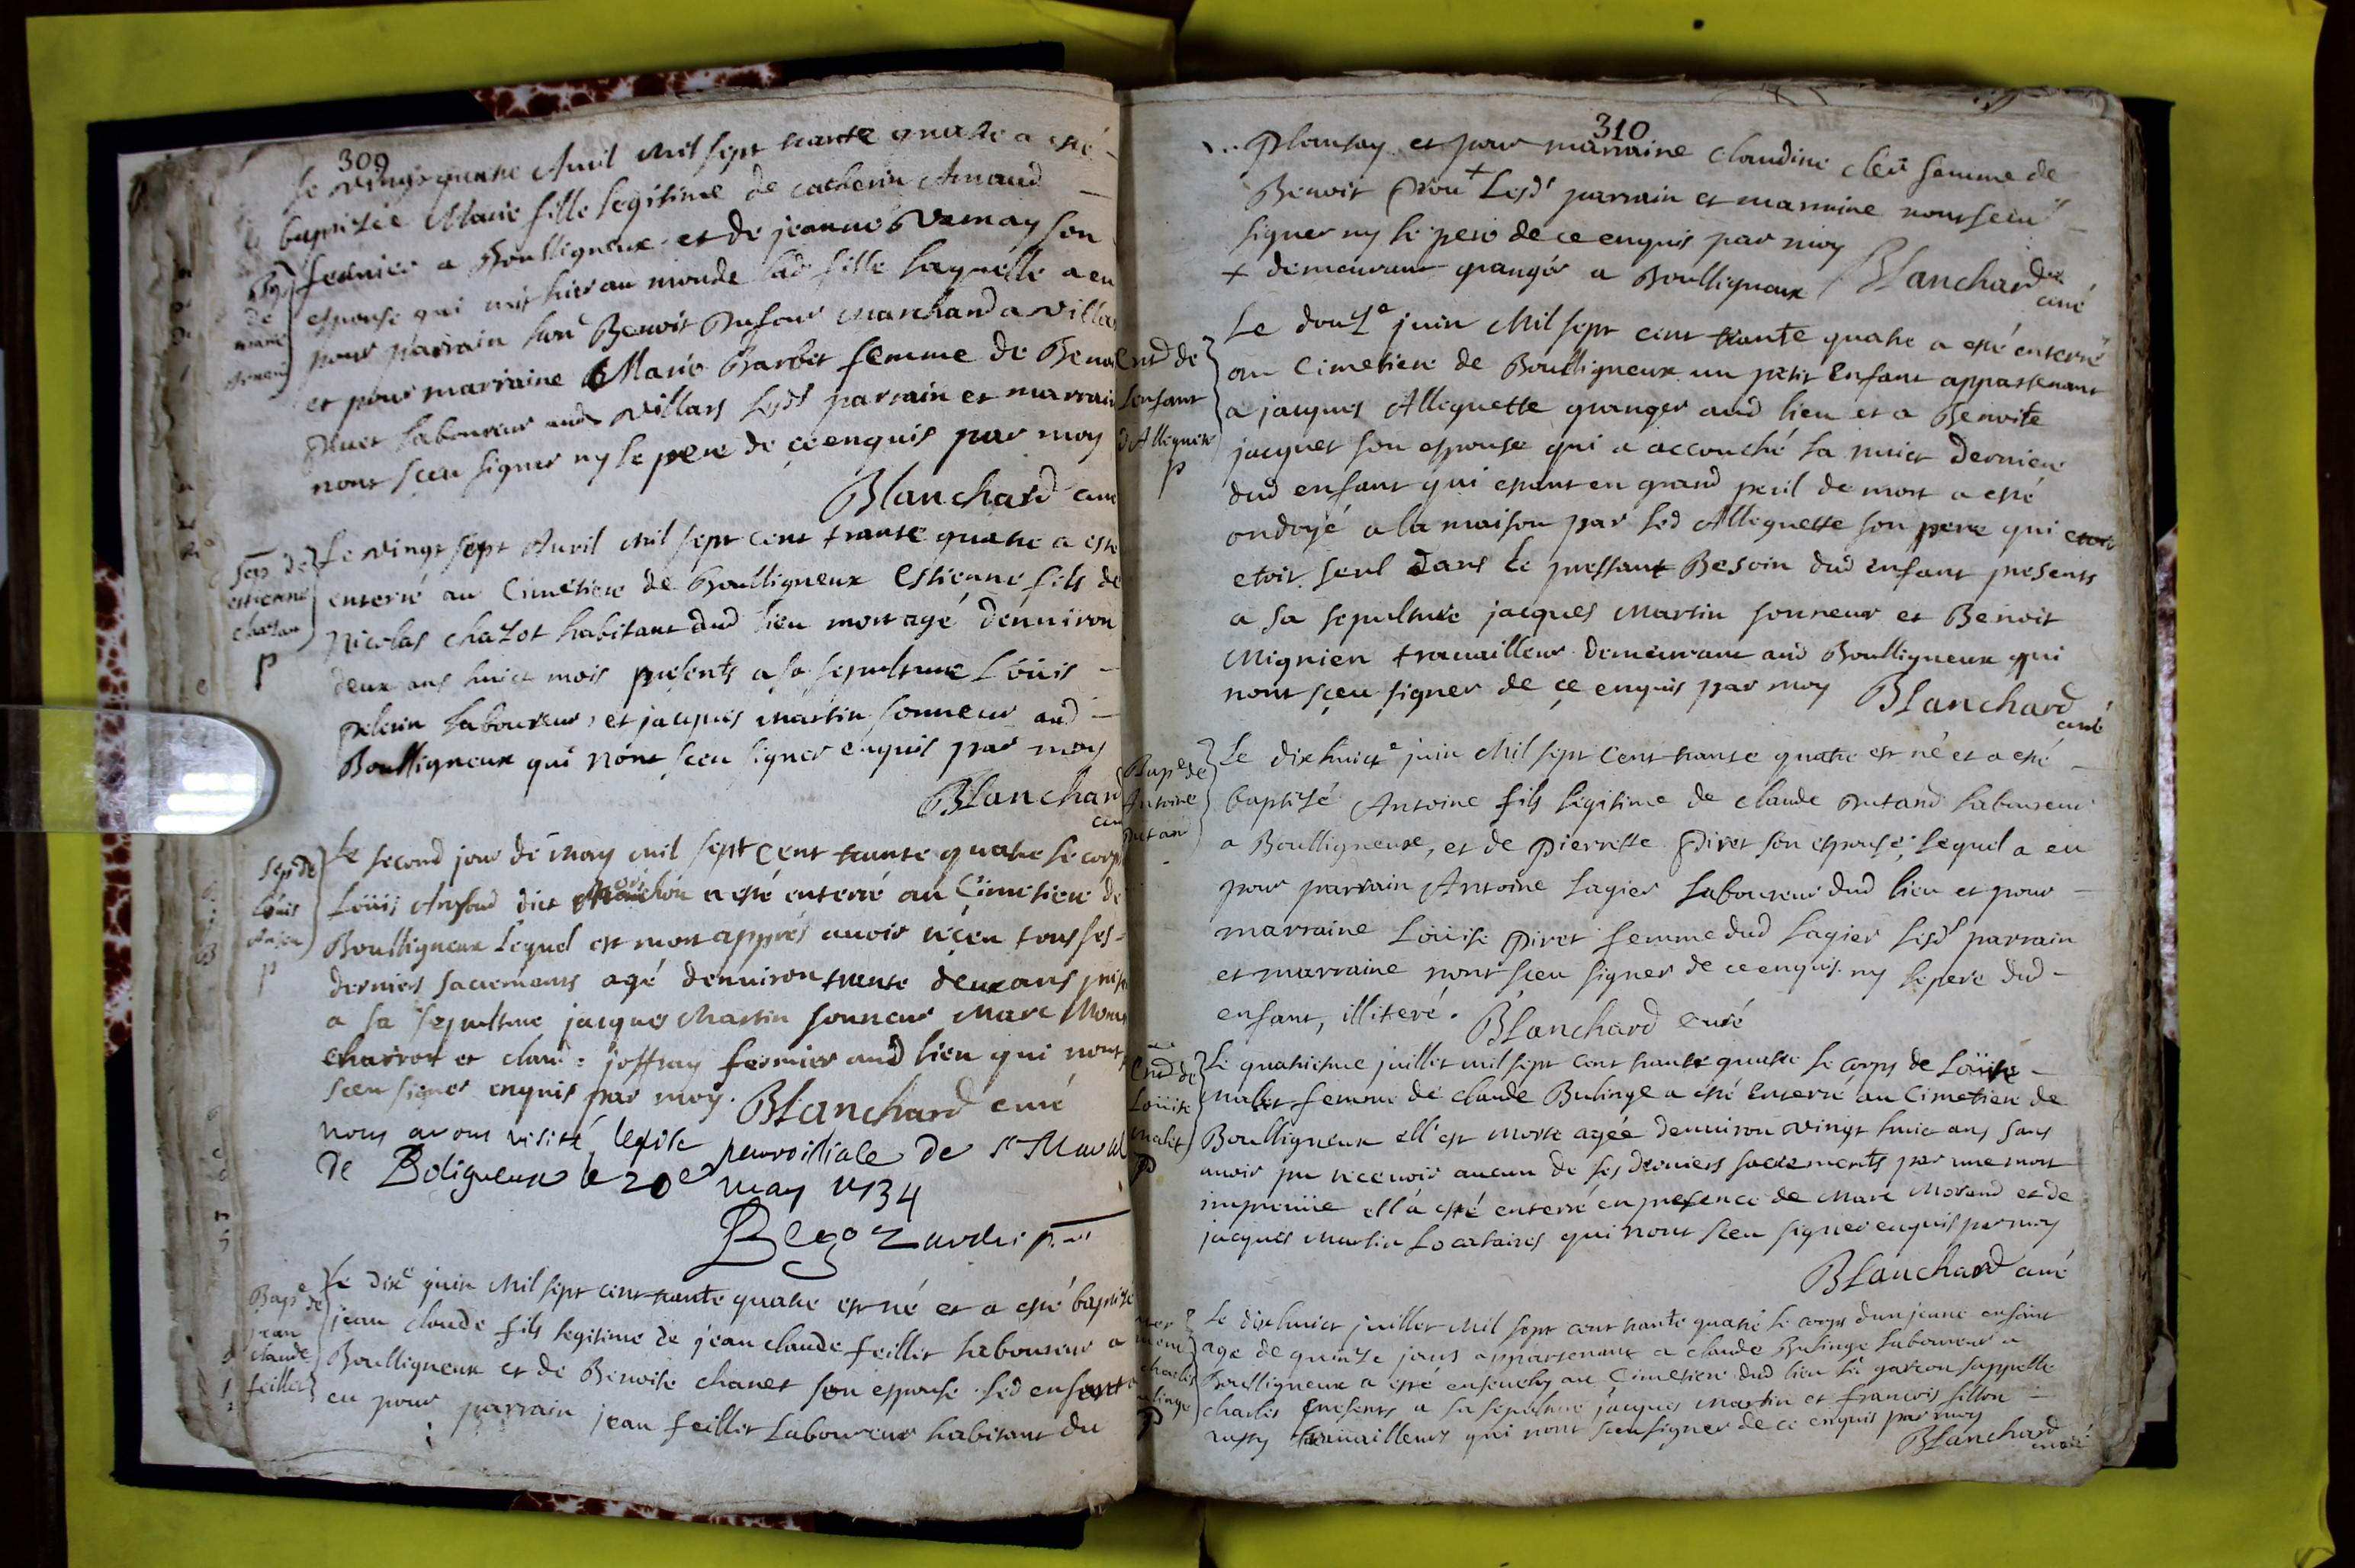 309
Le vingt quatre Auril Mil sept trante quatre a esté
baptisée Marie fille legitime de catherin Arnaud
fermier a Boulligneux et de jeanne Vernay son
espouse qui mit hier au monde lad fille laquelle a eu
pour parrain Benoit Dufour marchand a villa
et pour marraine Marie Barbet femme de Benoi
laboureur aud villars lesd parrain et marrain
nont sceu signer ny le pere de ce enquis par moy
Blanchard cure
Bap
de
marie
Arnaud
Sep de
estienne
chazot
p
Le vingt sept Auril mil sept cent trante quatre a esté
enterré au Cimetiere de Boulligneux Estienne fils de
Nicolas chazot habitant dud lieu mort agé denuiron
deux ans huict mois presents a sa sepulture Loüis
pelerin laboureur, et jacques martin sonneur aud
Boulligneux qui nont sceu signer enquis par moy
Blanchard
cu
Sep de
Loüis
p
Le second jour de may mil sept cent trante quatre le corps
Loüis dict a esté enterré au Cimetiere de
Boulligneux lequel est mort apprés auoir receu tous ses
derniers sacremants agé denuiron trente deux ans
a sa sepulture jacques Martin sonneur Marc
charron et claude joffray fermier aud lieu qui nont
sceu signer enquis par moy. Blanchard curé
nous avons visité leglise parroissiale de st
de Boligneux le 20e may 1734
Bap de
jean
claude
feillet
Le dixe juin Mil sept cent trante quatre est né et a esté baptizé
jean claude fils legitime de jean claude feillet laboureur a
Boulligneux et de Benoite chanet son espouse led enfant a
eu pour parrain jean feillet Laboureur habitant du
310
Plantay et pour marraine claudine femme de
Benoit + Lesds parrain et marraine nont sceu
signer ny le pere de ce enquis par moy
+ demeurant granger a Boulligneux Blanchard
curé
Ent de
lenfant
dAlleguette
p
Le douze juin Mil sept cent trante quatre a esté enterré
au Cimetiere de Boulligneux un petit Enfant appartenant
a jacques Alleguette granger aud lieu et a Benoite
jacquet son espouse qui a accouché la nuict derniere
dud enfant qui estant en grand peril de mort a esté
ondoyé a la maison par led Alleguette son pere qui
etoit seul dans le pressant Besoin dud enfant presents
a sa sepulture jacques Martin sonneur et Benoit
Mignien trauailleur demeurant aud Boulligneux qui
nont sceu signer de ce enquis par moy Blanchard
curé
Bape de
Antoine
Dutand
Le dixhuicte juin Mil sept Cent trante quatre est né et a esté
baptisé Antoine fils legitime de claude Dutand laboureur
a Boulligneux, et de Pierrette Piret son espouse, lequel a eu
pour parrain Antoine Lagier laboureur dud lieu et pour
marraine Loüise Piret femme dud Lagier lesds parrain
et marraine nont sceu signer de ce enquis ny le pere dud
enfant, illiteré. Blanchard curé
End de
Loüise
malet
p
Le quatrieme juillet mil sept cent trante quatre le corps de Loüise
malet femme de claude Bulinge a esté Enterré au Cimetiere de
Boulligneux ell'est morte agée denuiron vingt huict ans sans
auoir pu receuoir aucun de ses derniers sacrements par une mort
impreuüe ell'a esté enterré en presence de Marc Morand et de
jacques Martin Locataires qui nont sceu signer enquis par moy
Blanchard curé
charles
p
Le dixhuict juillet Mil sept cent trante quatre le corps dun jeune enfant
agé de quinze jours appartenant a claude Bulinge laboureur a
Boulligneux a esté enseuely au Cimetiere dud lieu le garcon sappelle
charles presents a sa sepulture jacques Martin et francois fillon
trauailleurs qui nont sceu signer de ce enquis par moy
Blanchard
curé